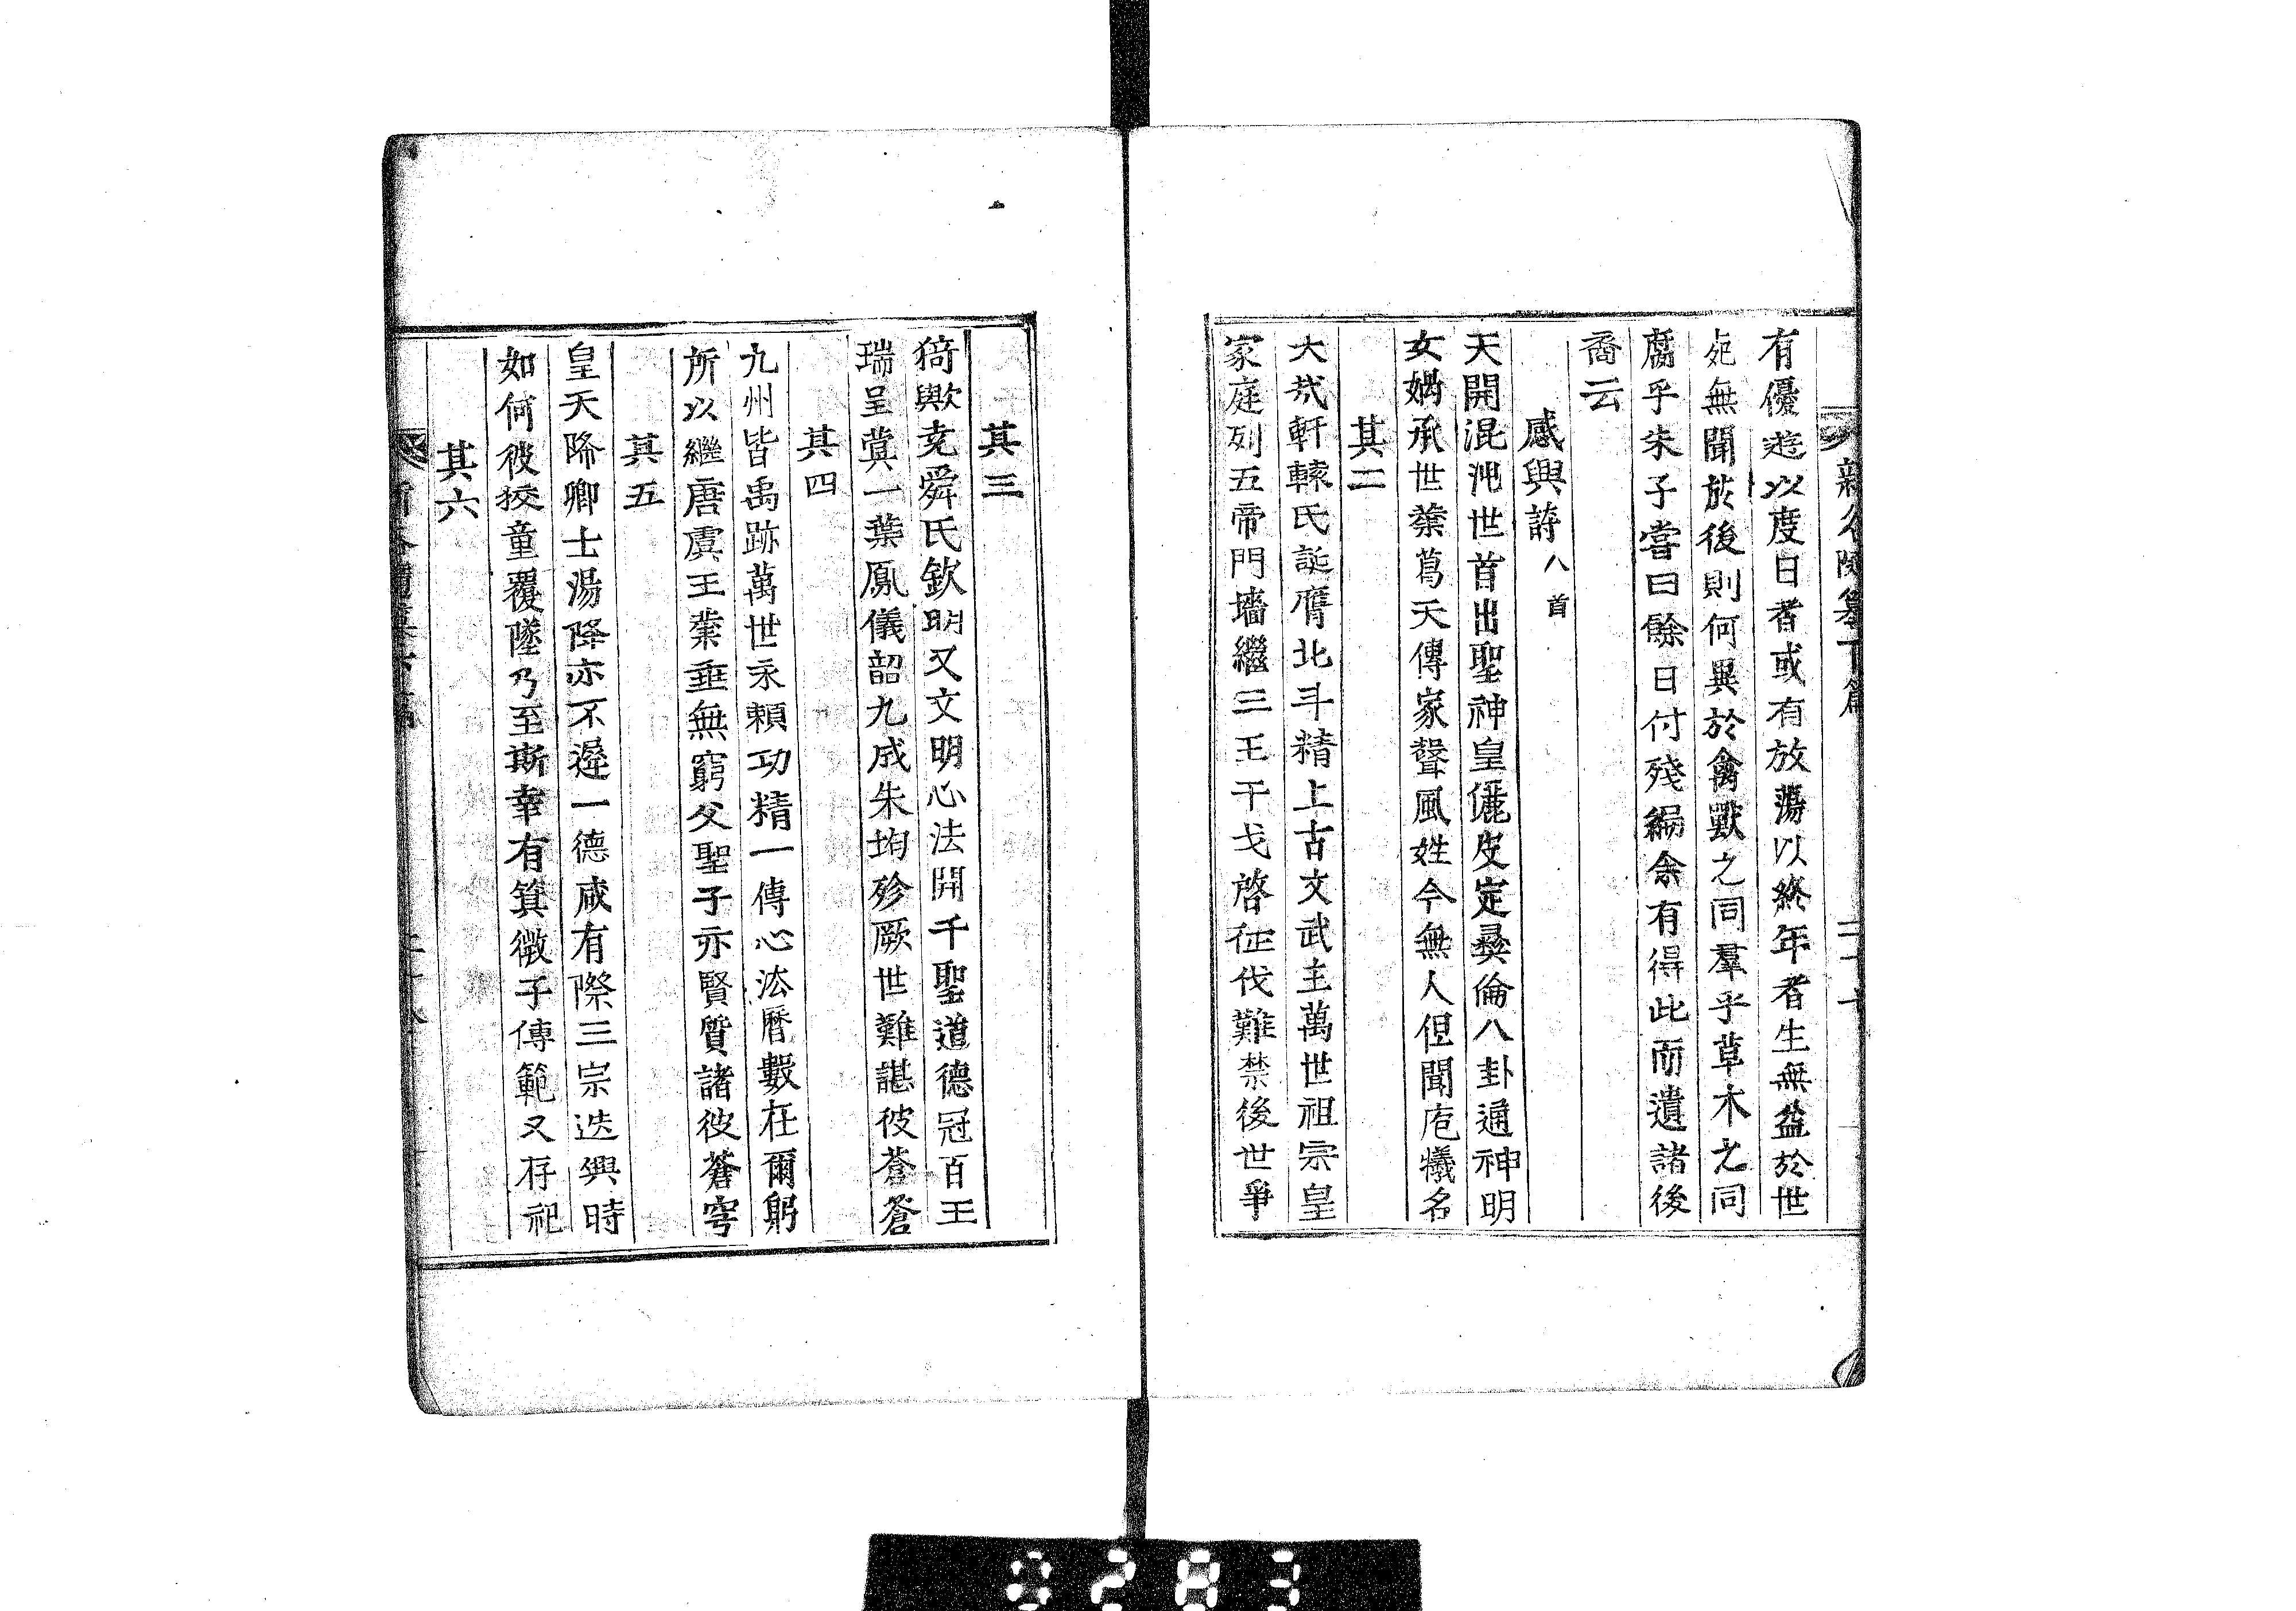 有優遊以度日者或有放蕩以終年者生無益於世
死無聞於後則何異於禽獸之同羣乎草木之同
腐乎朱子嘗曰餘日付殘編余有得此而遺諸後
裔云
感興詩八首
天開混沌世首出聖神皇儷皮定彜倫八卦通神明
女媧承世業葛天傳家聲風姓今無人但聞庖犧名
其二
大㢤軒轅氏誕膺北斗精上古文武主萬世祖宗皇
家庭列五帝門墻繼三王干戈啓征伐難禁後世爭
其三
猗歟尭舜氏欽明又文明心法開千聖道德冠百王
瑞呈蓂一葉鳳儀韶九成朱均殄厥世難諶彼蒼蒼
其四
九州皆禹跡萬世永賴功精一傳心法曆數在爾躬
所以繼唐虞王業垂無窮父聖子亦賢質諸彼蒼穹
其五
皇天降卿士湯降亦不遲一德咸有際三宗迭興時
如何彼狡童覆墜乃至斯幸有箕微子傳範又存祀
其六
0283